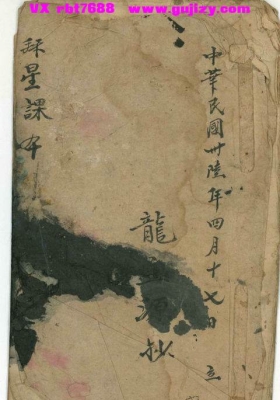 VX rbt7688 www.gujizy.com
中華民國卅陸年四月十七日 立
龍 抄
星課本